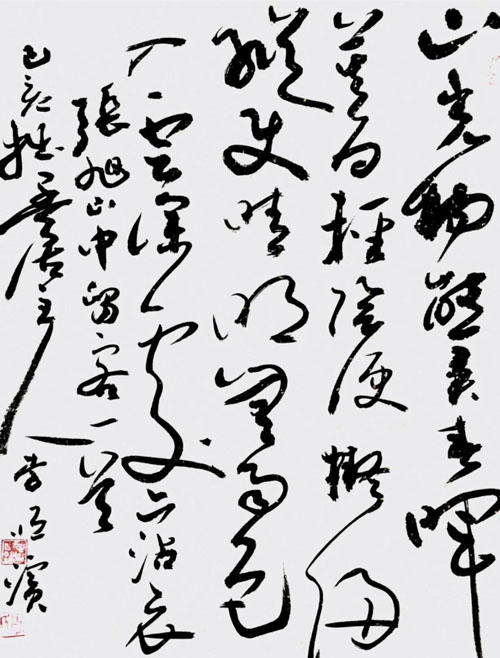 山光物態弄春暉
莫為輕陰便擬歸
縱使晴明無雨色
入雲深處亦沾衣
張旭山中留客一首
己亥 居主人 李